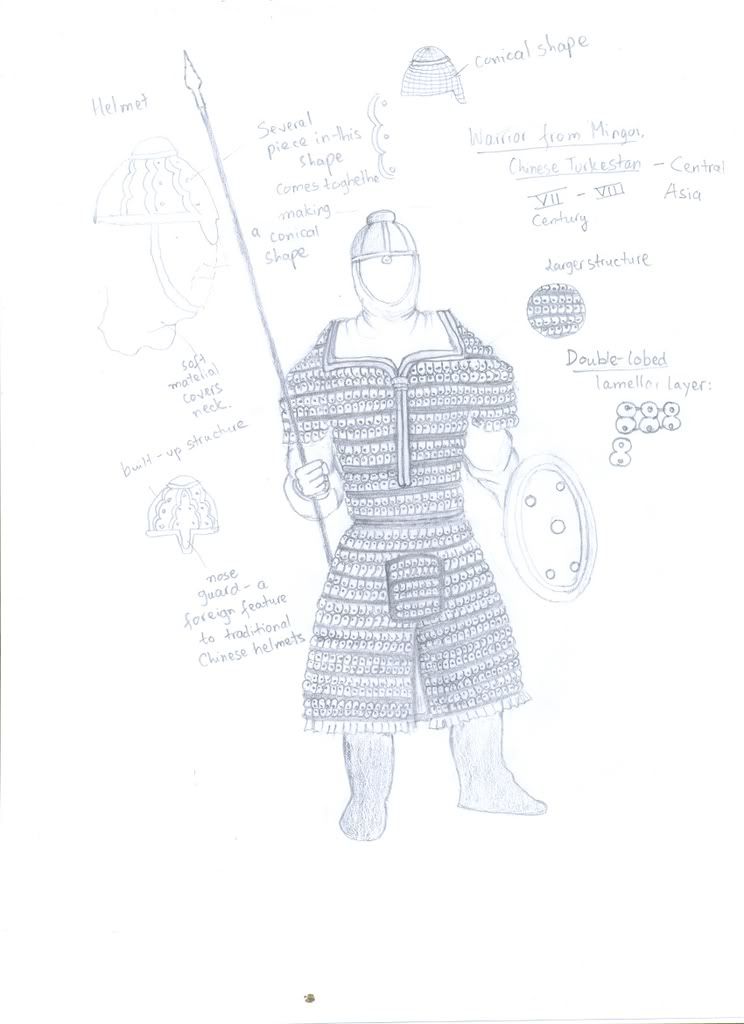 conical shape
Helmet
Several
piece in this
shape
comes toghethe
making
a conical
shape
Warrior from Mingoi,
Chinese Turkestan - Central
Asia
VII - VIII
Century
Larger structure
Double-lobed
lamellar layer:
soft
material
covers
neck.
built-up structure
nose
guard - a
foreign feature
to traditional
Chinese helmets